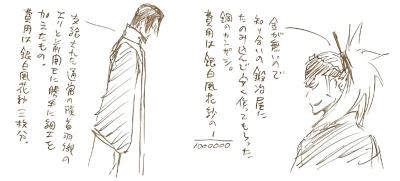 金が無いので
知り合いの鍛冶屋に
たのみ込んで安く作ってもらった
鋼のカンザシ。
費用は銀白風花紗の
1/1000000
支給された通常の隊首羽織の
エリと前開きに勝手に細工を
加えたもの。
費用は銀白風花紗三枚分。